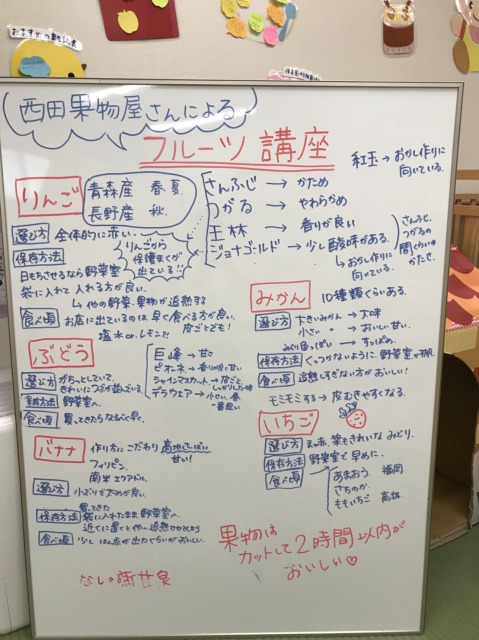 西田果物屋さんによる
フルーツ講座
紅玉→おかし作りに
向いている。
りんご
青森産 春夏
長野産 秋
さんふじ → かため
つがる → やわらかめ
王林 → 香りが良い
ジョナゴールド→少し酸味がある。
↳おかし作りに
向いている。
さんふじと、
つがるの
かたさ。
選び方 全体的に赤い。
りんごから
保護まくが
出ている!!
保存方法
日もちさせるなら野菜室
袋に入れて入れる方が良い。
↳他の野菜・果物が追熟する
食べ頃 お店に出ているのは早く食べる方が良い。
塩水orレモン?! 皮ごとでも!
ぶどう
巨峰→甘さ
ピオーネ→香りが良く甘い
シャインマスカット→皮ごと
しっかりした味
デラウェア→小さい、春
一番早い
選び方 がちっとしていて、
きれいにつぶが並んでいる。
保存方法 野菜室へ
食べ頃 買ってきたらなるべく早く。
バナナ 作り方にこだわり 高地さいばい
甘い!
フィリピン、
南米エクアドルに
選び方 小ぶりで太めが良い。
買ってきた
保存方法 袋に入れたまま野菜室へ
近くに置くと他が追熟させてしまう
食べ頃 少しはん点が出たくらいがおいしい。
みかん 10種類くらいある。
選び方 大きいみかん→大味
小さい 〃 →おいしい甘い。
みどり色っぽい→すっぱめ。
保存方法 くっつかないように、野菜室が
食べ頃 追熟しすぎない方がおいしい!
モミモミする→皮むきやすくなる。
いちご
選び方 まっ赤、葉もきれいなみどり。
保存方法 野菜室で早めに。
食べ頃
あまおう 福岡
さちのか
ももいちご
果物は
カットして2時間以内が
おいしい♡
なし